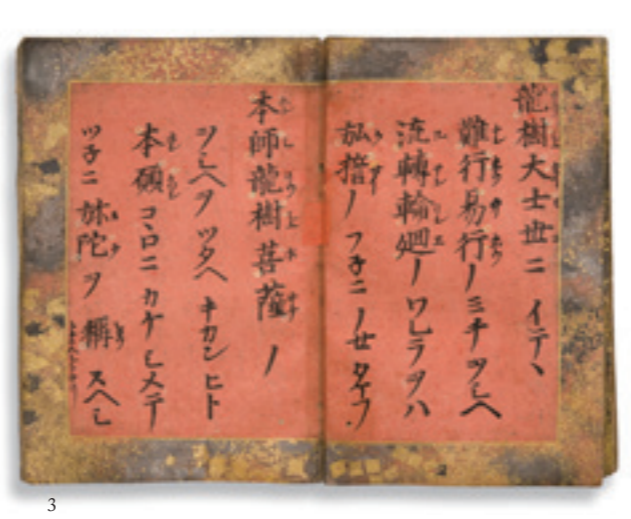 龍樹大士世ニイテヽ
難行易行ノミチヲシヘ
流轉輪廻ノワレラヲハ
弘誓ノフ子ニノセタマフ
本師龍樹菩薩ノ
ヲシヘヲツタヘキカンヒト
本願コヽロニカケシメテ
ツ子ニ弥陀ヲ稱スヘシ
3